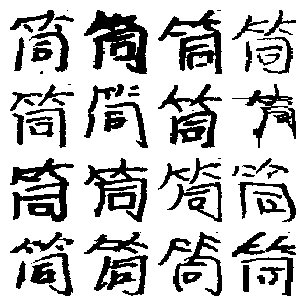 筒筒筒筒
筒筒筒筒
筒筒筒筒
筒筒筒筒